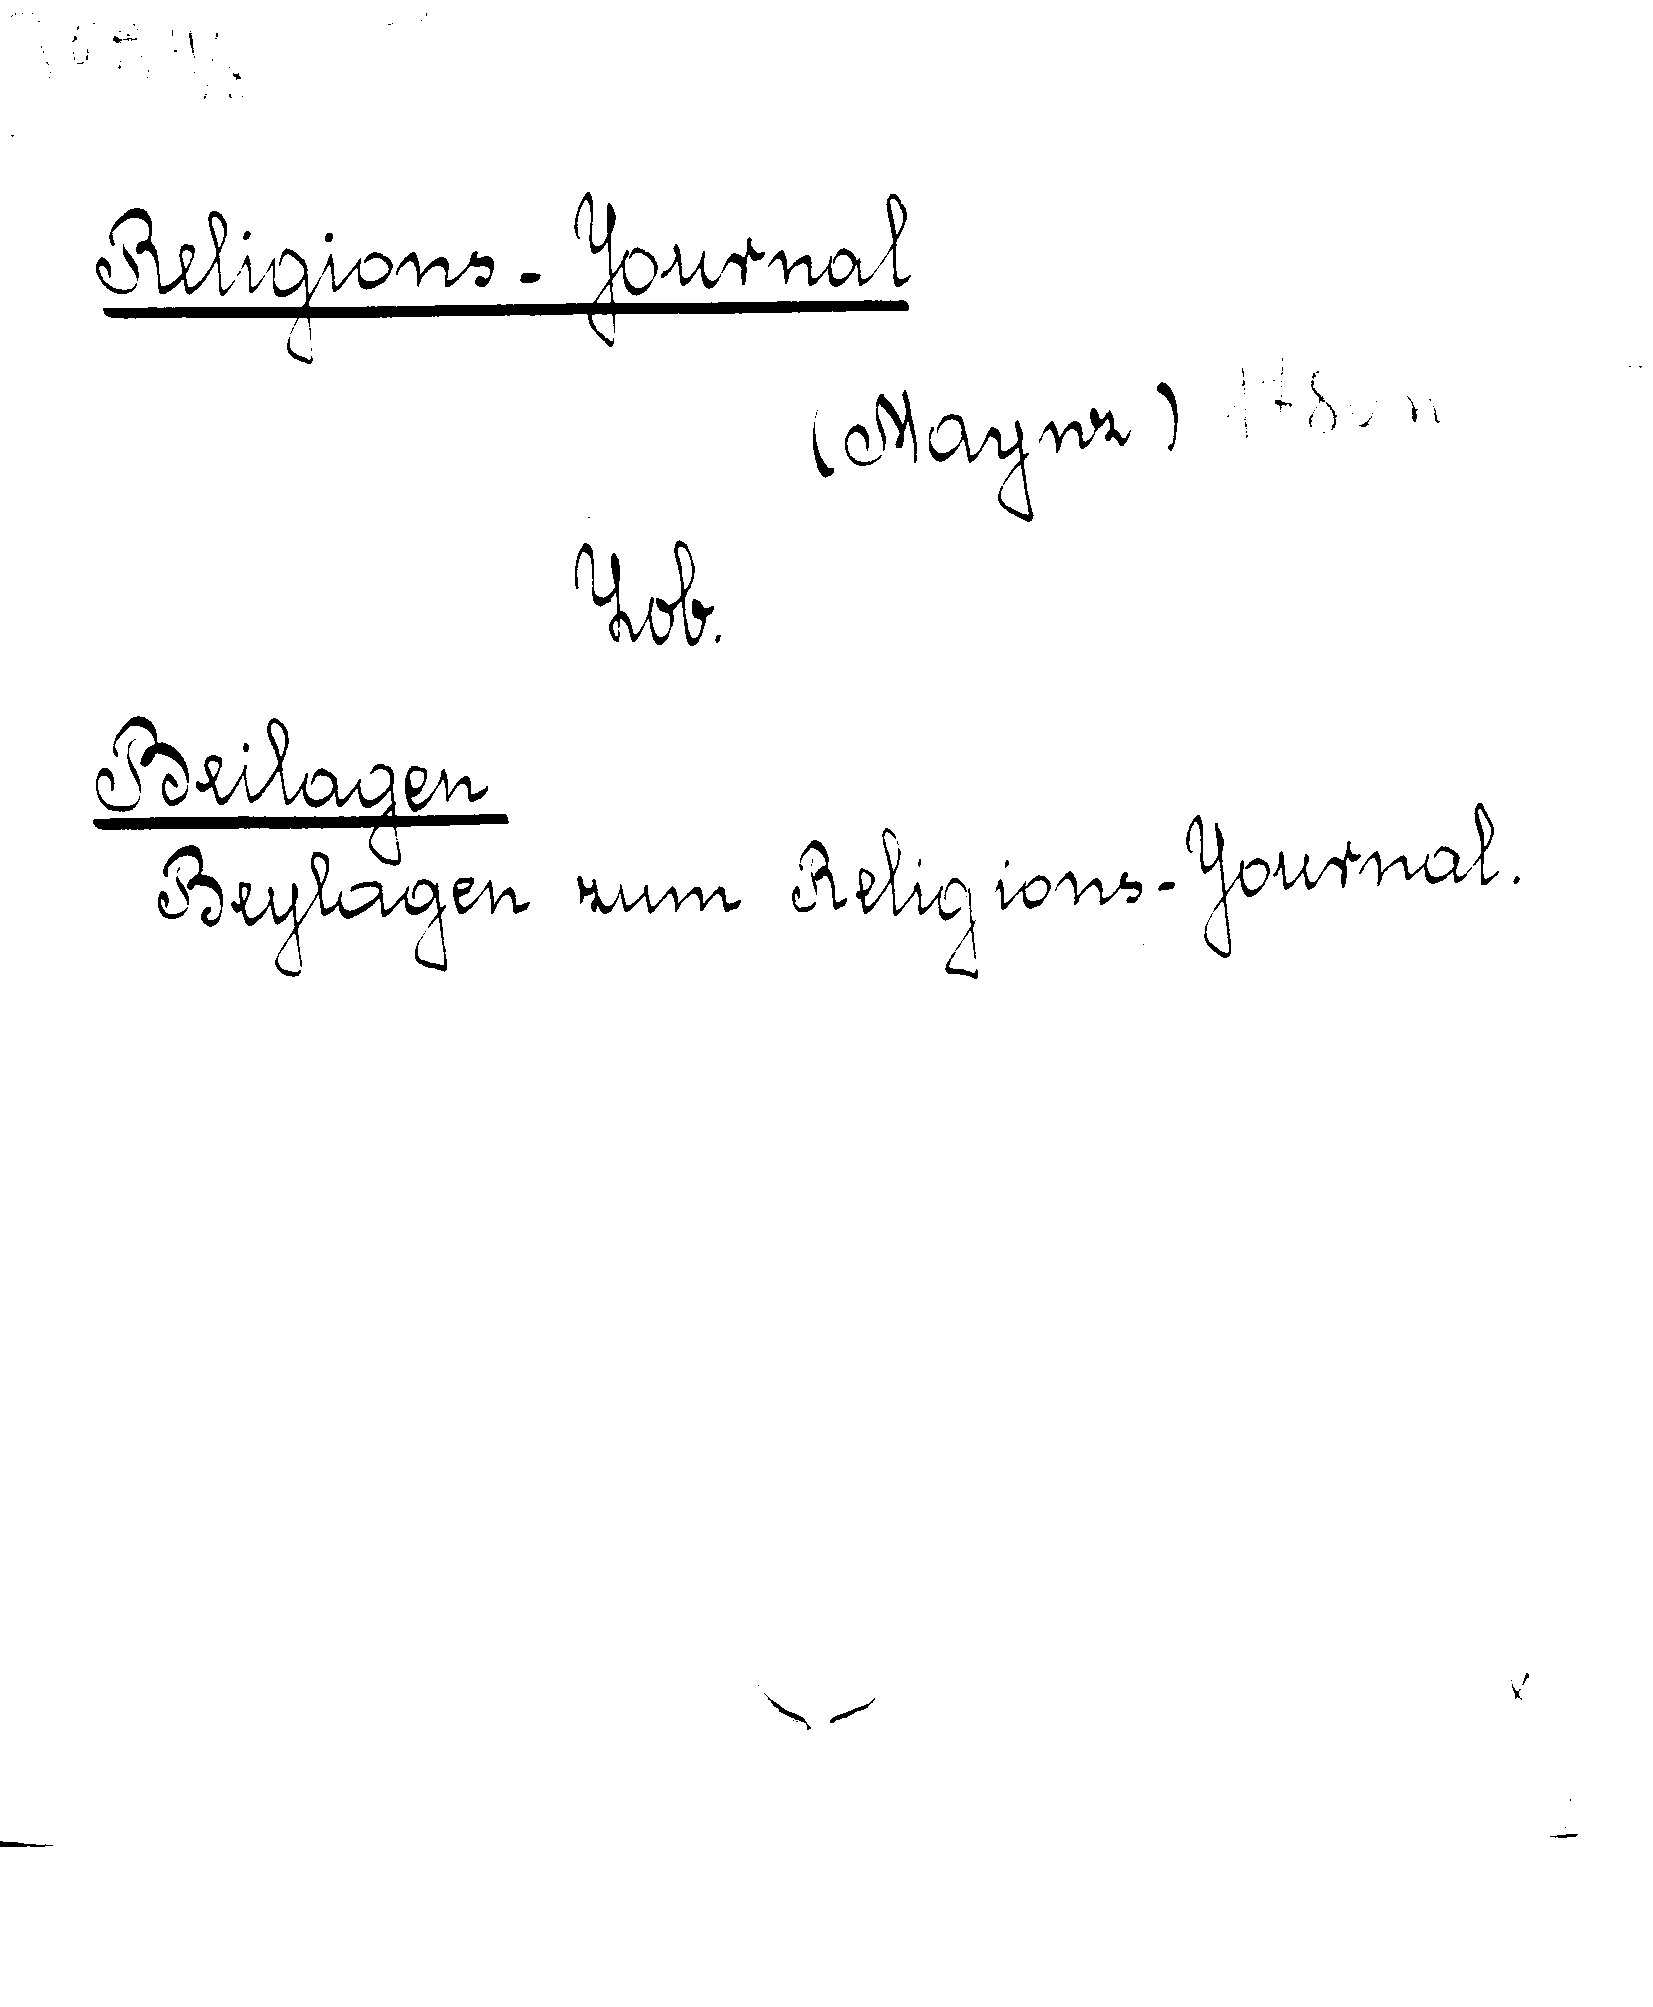 Religions-Journal
(Maynz)
Zob.
Beilagen
Beylagen zum Religions-Journal.